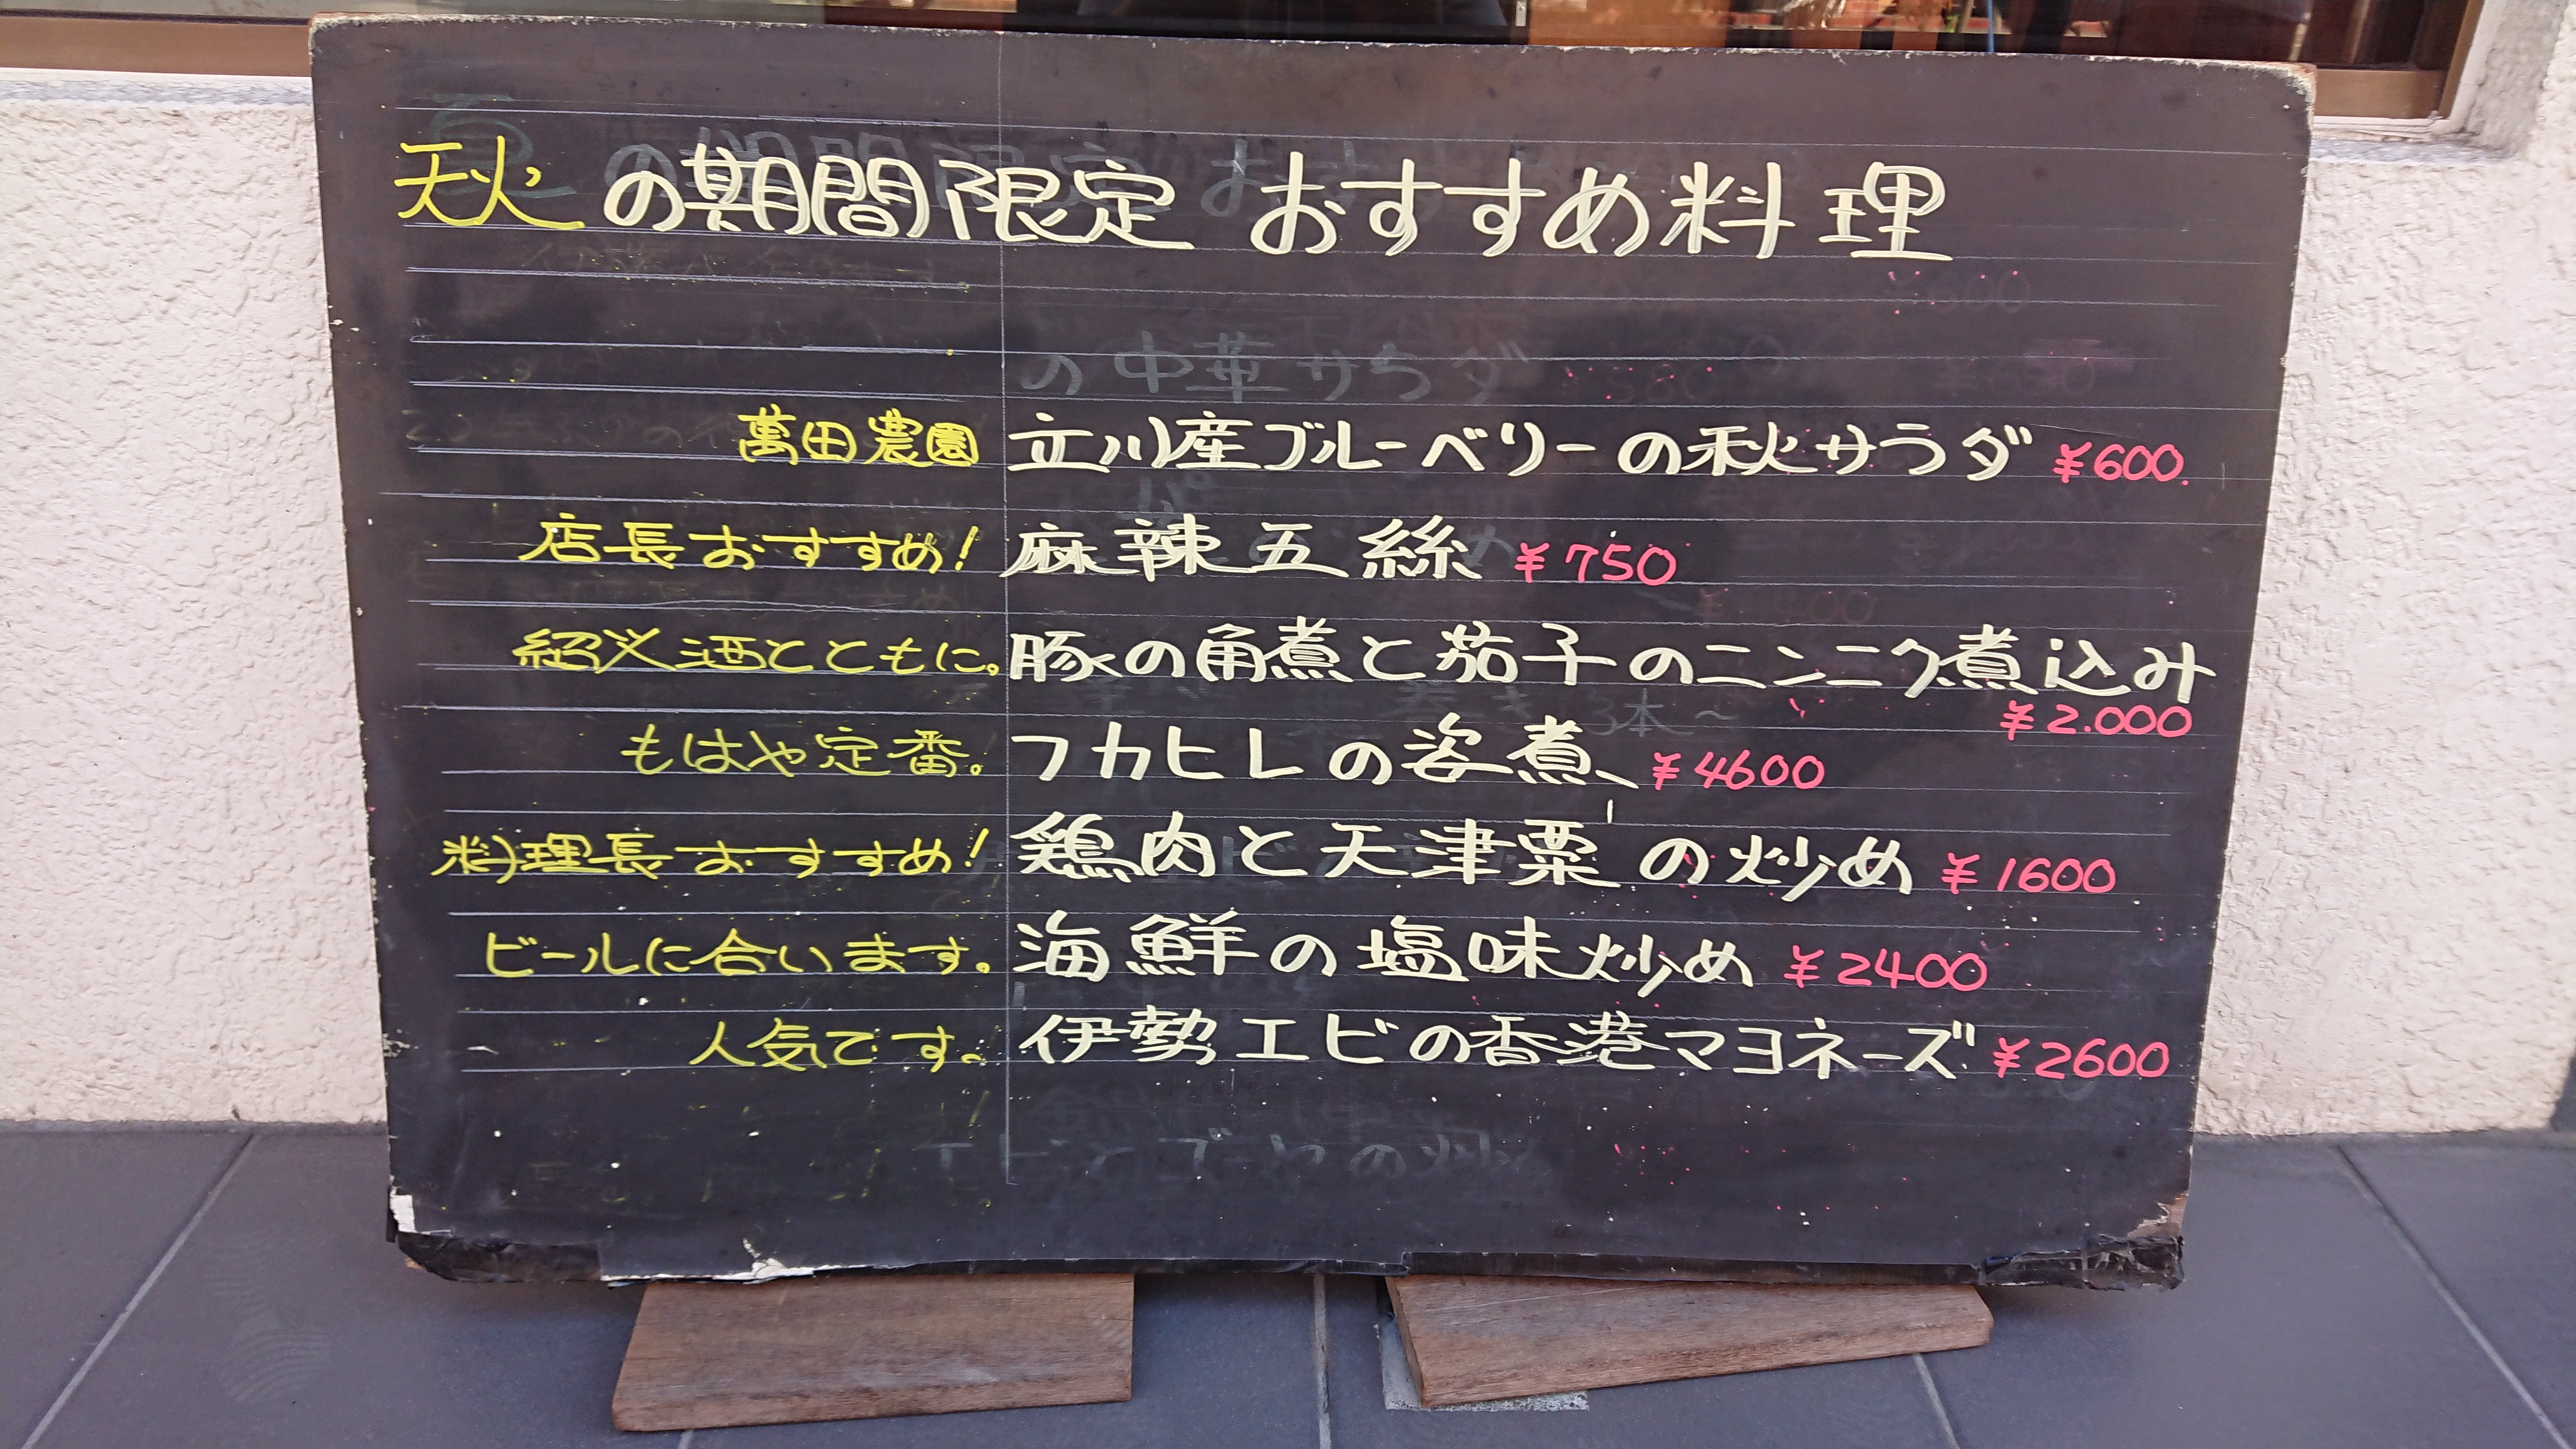 秋の期間限定 おすすめ料理
の中華サラダ
萬田農園 立川産ブルーベリーの秋サラダ ¥600.
店長おすすめ! 麻辣五絲 ¥750
紹興酒とともに。豚の角煮と茄子のニンニク煮込み
¥2.000
もはや定番。フカヒレの姿煮 ¥4600
料理長おすすめ! 鶏肉と天津栗の炒め ¥1600
ビールに合います。海鮮の塩味炒め ¥2400
人気です。伊勢エビの香港マヨネーズ ¥2600